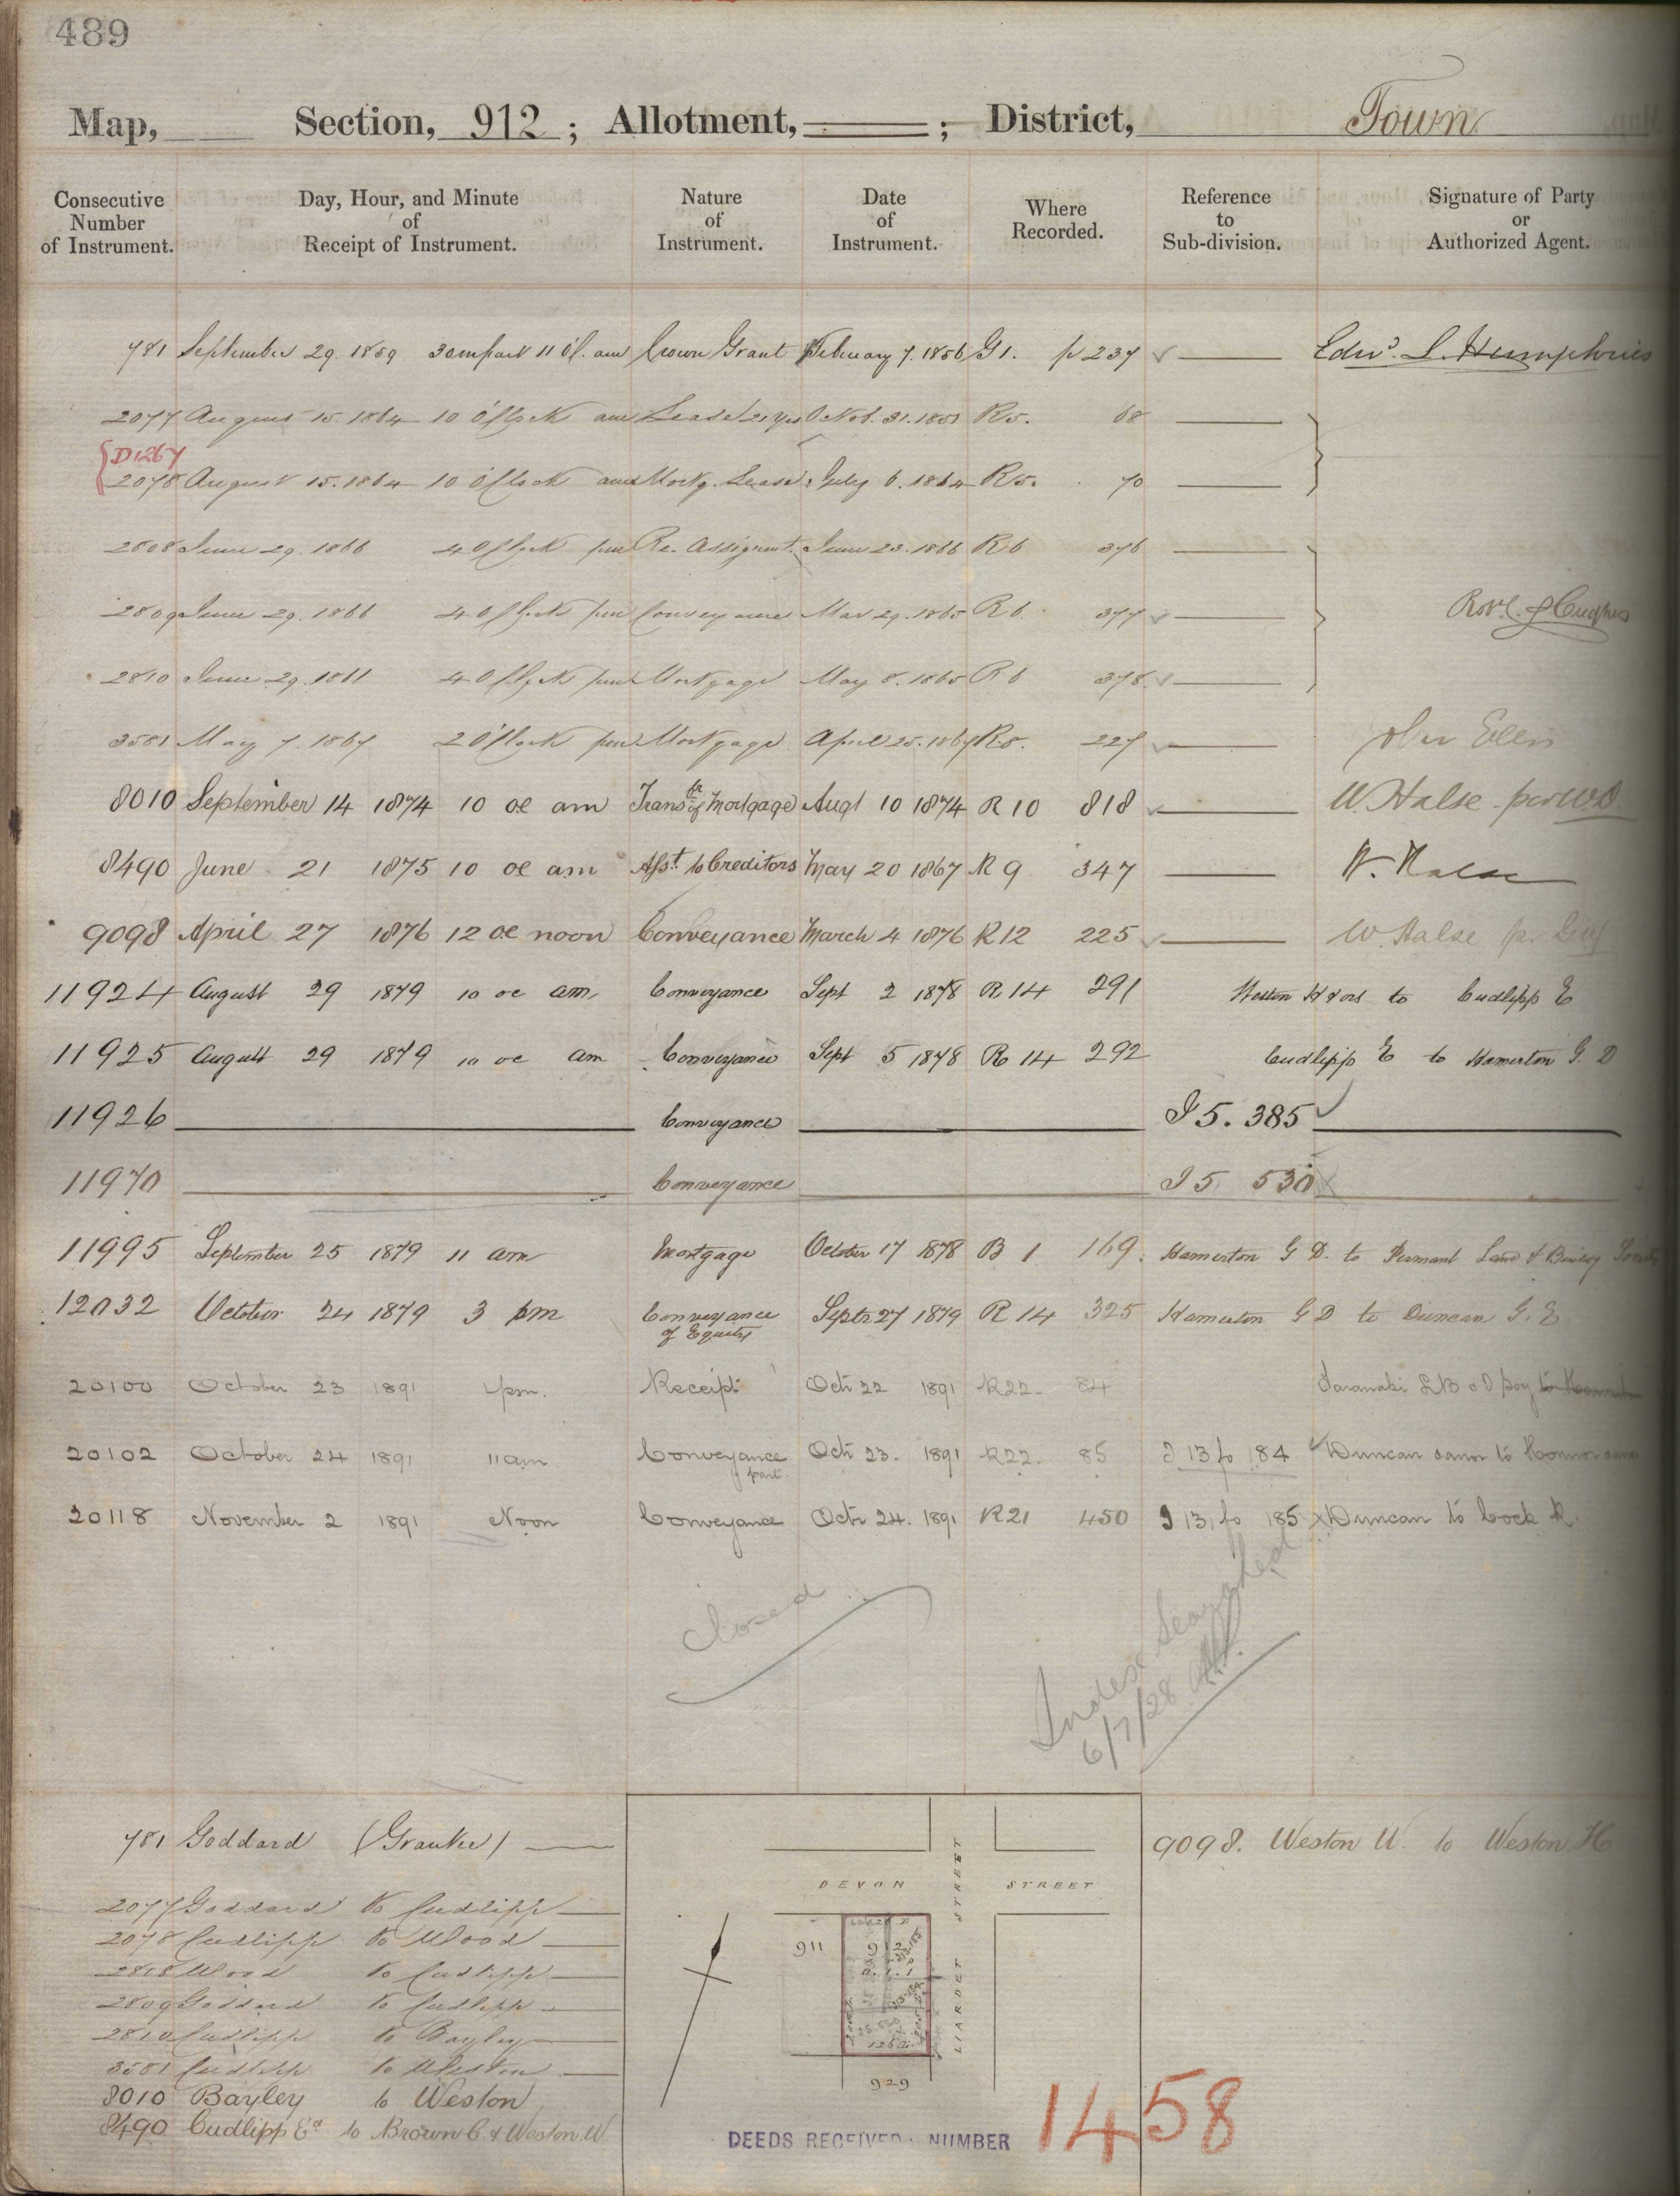 489
Map, Section, 912 ; Allotment, ; District, Town
Consecutive Number of Instrument. Day, Hour, and Minute of Receipt of Instrument. Nature of Instrument. Date of Instrument. Where Recorded. Reference to Sub-division. Signature of Party or Authorized Agent.
781 September 29. 1859 30 m past 11 o'c. am Crown Grant February 7. 1856 G1. p 237 Edwd. L. Humphries
2077 August 15. 1864 10 o'Clock am Lease 21 yrs Octob. 31. 1851 R5. 68
D1267
2078 August 15. 1864 10 o'Clock am Mortg. Lease July 6. 1864 R5. 70
2808 June 29. 1866 4 O'Clock pm Re. Assignmt. June 23. 1866 R6 376
2809 June 29. 1866 4 O'Clock pm Conveyance Mar 29. 1865 R6 377 Robt. C. Hughes
2810 June 29. 1866 4 O'Clock pm Mortgage May 8. 1865 R6 378
3581 May 7. 1867 2 O'Clock pm Mortgage April 25. 1867 R8. 227
8010 September 14 1874 10 oc am Transfr of Mortgage Augt 10 1874 R 10 818 W. Halse per WD
8490 June 21 1875 10 oc am Asst. to Creditors May 20 1867 R 9 347 W. Halse
9098 April 27 1876 12 oc noon Conveyance March 4 1876 R12 225 W. Halse per
11924 August 29 1879 10 oc am Conveyance Sept 2 1878 R 14 291 Weston H & ors to Cudlipp E
11925 August 29 1879 10 oc am Conveyance Sept 5 1878 R 14 292 Cudlipp E to Hamerton G. D
11926 Conveyance I 5. 385
11970 Conveyance I 5 530
11995 September 25 1879 11 am Mortgage October 17 1878 B 1 169. Hamerton G D. to Permant Land & Buildg Society
12032 October 24 1879 3 pm Conveyance of Equity Septr 27 1879 R 14 325 Hamerton G D to Duncan G. E
20100 October 23 1891 1pm. Receipt Octr 22 1891 R22. 84 Taranaki
20102 October 24 1891 11am Conveyance part. Octr 23. 1891 R22. 85 I 13 fo 184 Duncan
20118 November 2 1891 Noon Conveyance Octr 24. 1891 R21 450 I 13, fo 185 Duncan to Cock R.
Closed
Index Searched
6/7/28
781 Goddard (Grantee)
2077 Goddard to Cudlipp
2078 Cudlipp to Wood
2808 Wood to Cudlipp
2809 Goddard to Cudlipp
2810 Cudlipp to Bayley
3581 Cudlipp to Weston
8010 Bayley to Weston
8490 Cudlipp Ed to Brown C. & Weston W.
DEVON STREET
LIARDET STREET
911
912
929
9098. Weston W. to Weston H
DEEDS RECEIVED: NUMBER 1458